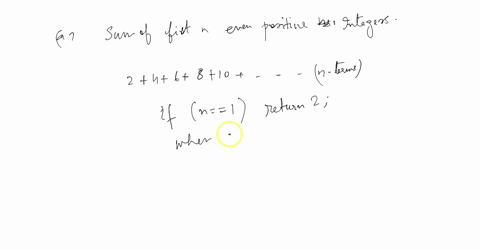 Sum of first n even positive Integers.
2+4+6+8+10+ - - - (n-terms)
if (n==1) return 2;
when